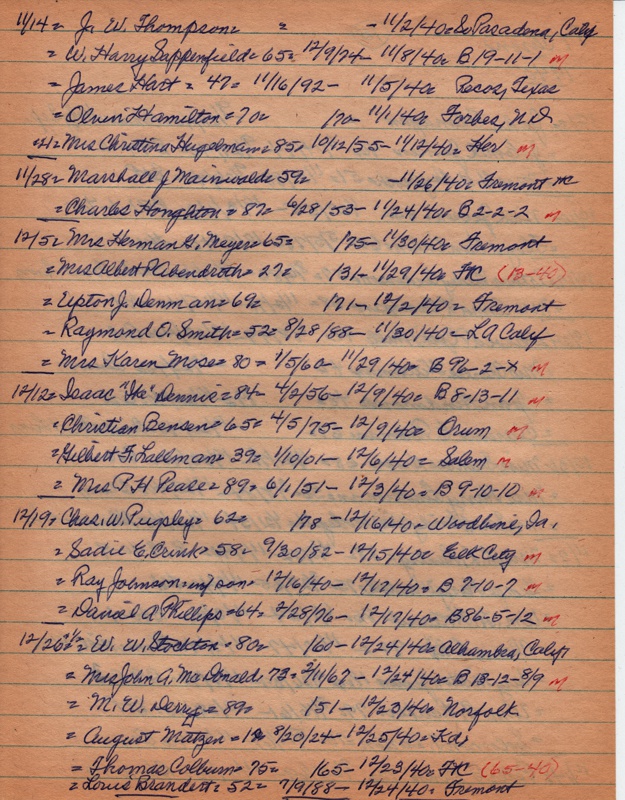 11/14 = J. W. Thompson = = - 11/2/40 = So Pasadena, Calif
= W. Harry Sappenfield = 65 = 12/9/74 - 11/8/40 = B 19-11-1 m
= James Hart = 47 = 11/16/92 - 11/5/40 = Pecos, Texas
= Hamilton = 70 = /70 - 11/1/40 = Forbes, N.D.
= Mrs Christina Hugelman = 85 = 10/12/55 - 11/12/40 = Her m
11/28 = Marshall J Mainwald = 59 = - 11/26/40 = Fremont
= Charles Houghton = 87 = 6/28/53 - 11/24/40 = B 2-2-2 m
12/5 = Mrs Herman G. Meyer = 65 = /75 - 11/30/40 = Fremont
= Mrs Albert P Abendroth = 27 = /31 - 11/29/40 = FC (13-40)
= Upton J. Denman = 69 = /71 - 12/2/40 = Fremont
= Raymond O. Smith = 52 = 8/28/88 - 11/30/40 = LA Calif
= Mrs Karen Mose = 80 = 1/5/60 - 11/29/40 = B 96-2-X m
12/12 = Isaac "Ike" Dennis = 84 - 4/2/56 - 12/9/40 = B 8-13-11 m
= Christian Bensen = 65 = 4/5/75 - 12/9/40 = Orum m
= Gilbert F. Lallman = 39 = 1/10/01 - 12/6/40 = Salem m
= Mrs P H Pease = 89 = 6/1/51 - 12/3/40 = B 9-10-10 m
12/19 = Chas. W. Pugsley = 62 = /78 - 12/16/40 = Woodbine, Ia.
= Sadie E. Crink = 58 = 9/30/82 - 12/15/40 = Elk City m
= Ray Johnson = inf son = 12/16/40 - 12/17/40 = B 7-10-7 m
= David A Phillips = 64 = 2/28/76 - 12/17/40 = B 86-5-12 m
12/26 = W. W. Stockton = 80 = /60 - 12/24/40 = Alhambra, Calif
= Mrs John A. MacDonald = 73 = 2/11/67 - 12/24/40 = B 13-12-8/9 m
= M. W. Derry = 89 = /51 - 12/23/40 = Norfolk
= August Matzen = 8/20/24 - 12/25/40 = Ka
= Thomas Colburn = 75 = /65 - 12/23/40 = FC (65-40)
= Louis Brandert = 52 = 7/9/88 - 12/24/40 = Fremont